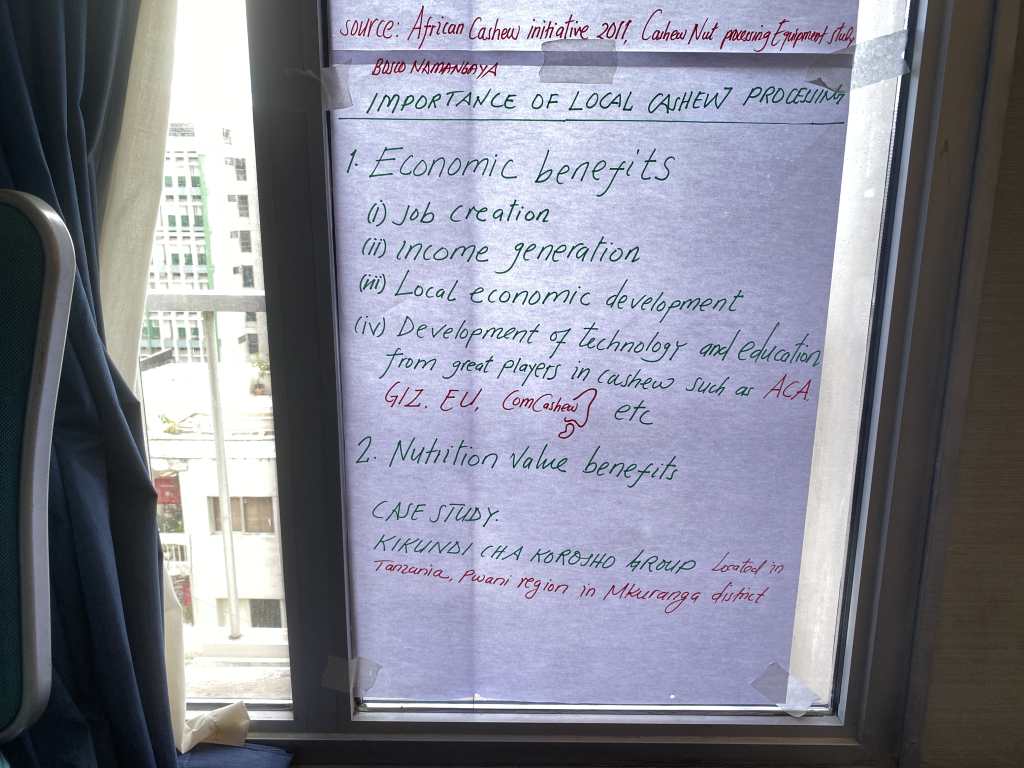 source: African Cashew initiative 2011, Cashew Nut processing Equipment study
BOSCO NAMANGAYA
IMPORTANCE OF LOCAL CASHEW PROCESSING
1. Economic benefits
(i) Job creation
(ii) Income generation
(iii) Local economic development
(iv) Development of technology and education
from great players in cashew such as ACA.
GIZ. EU, ComCashew etc
2. Nutrition value benefits
CASE STUDY.
KIKUNDI CHA KOROSHO GROUP Located in
Tanzania, Pwani region in Mkuranga district